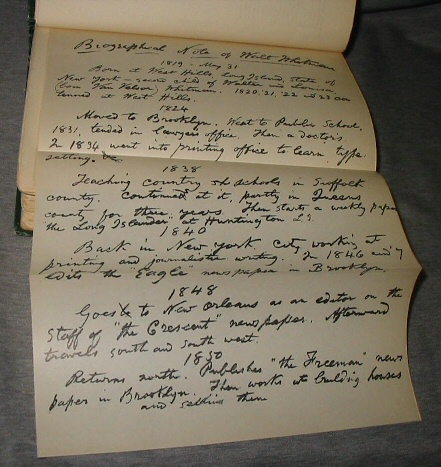 Biographical Note of Walt Whitman
1819 - May 31
Born at West Hills, Long Island, State of
New York - second child of Walter and Louisa
(born Van Velsor) Whitman. 1820, '21, '22 and 23 con
tinued at West Hills.
1824
Moved to Brooklyn. Went to Public School,
1831, tended in lawyer's office. Then a doctor's
In 1834 went into printing office to learn type
setting.
1838
Teaching country schools in Suffolk
county. Continued at it, partly in Queens
county for three years. Then starts a weekly paper
the Long Islander, at Huntington L.I.
1840
Back in New York city, working at
printing and journalistic writing. In 1846 and '7
edits the "Eagle" newspaper in Brooklyn.
1848
Goes to New Orleans as an editor on the
staff of "the Crescent" newspaper. Afterward
travels south and south west.
1850
Returns north. Publishes "the Freeman" news
paper in Brooklyn. Then works at building houses
and selling them